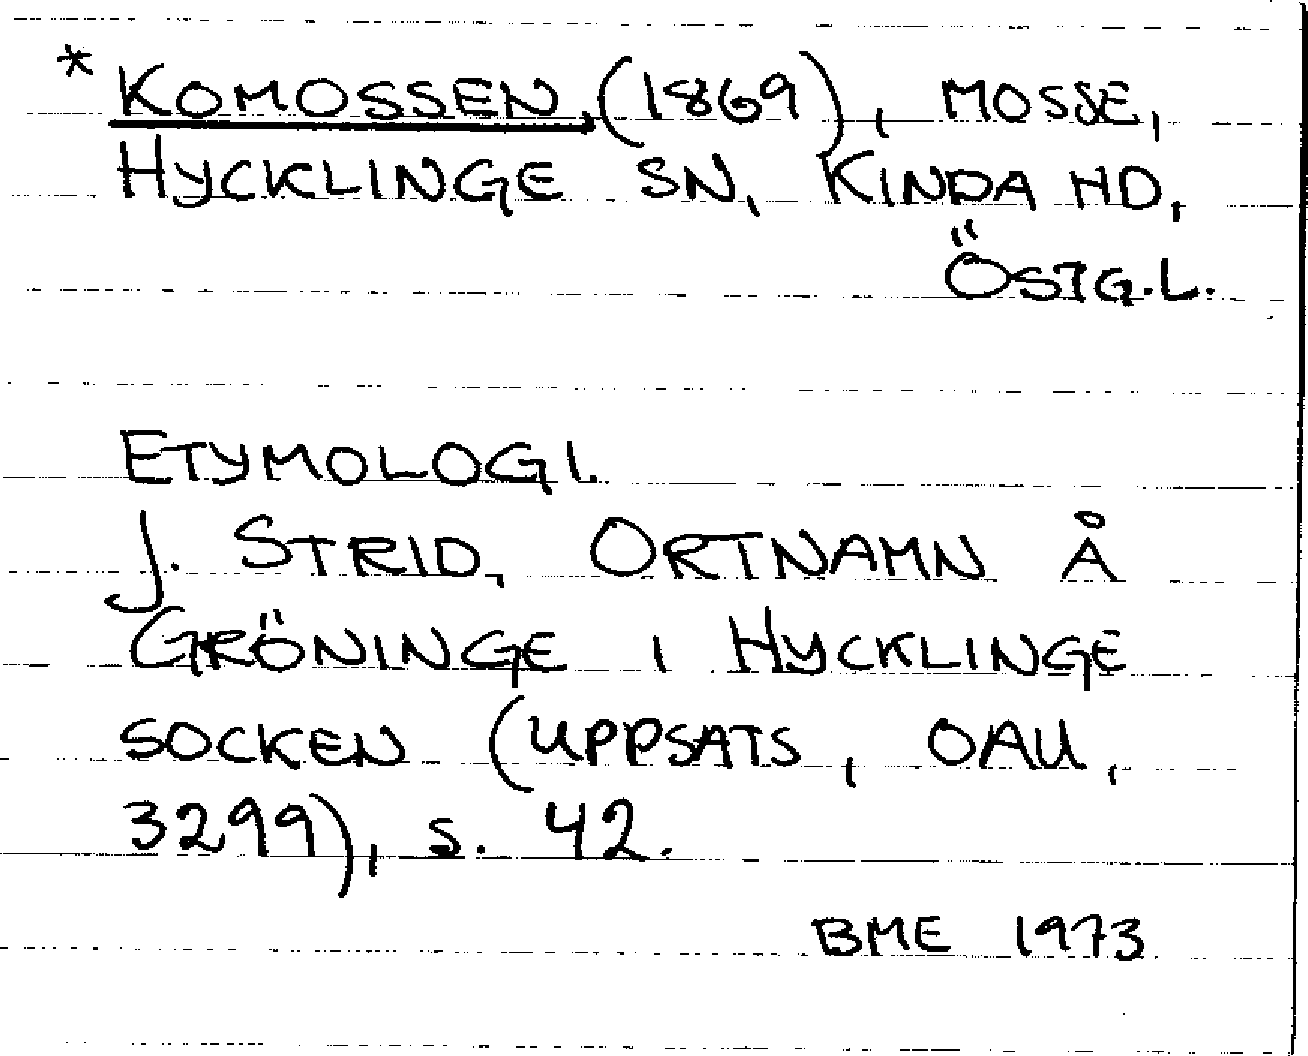 * KOMOSSEN (1869), MOSSE,
HYCKLINGE SN, KINDA HD,
ÖSTG.L.
ETYMOLOGI.
J. STRID, ORTNAMN Å
GRÖNINGE I HYCKLINGE
SOCKEN (UPPSATS, OAU,
3299), S. 42.
BME 1973